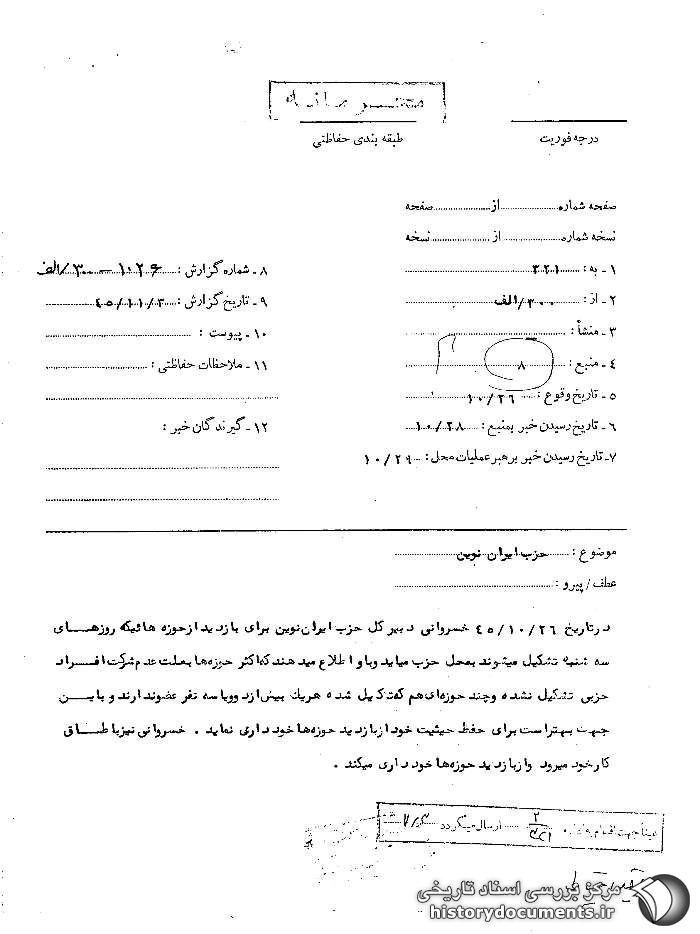 محرمانه
درجه فوریت
طبقه بندی حفاظتی
صفحه شماره ........ از ........ صفحه
نسخه شماره ........ از ........ نسخه
۱ـ به : ۳۲۱
۲ـ از : ۳۰۰/الف
۳ـ منشأ :
۴ـ منبع : ۸
۵ـ تاریخ وقوع : ۱۰/۲۶
۶ـ تاریخ رسیدن خبر بمنبع : ۱۰/۲۸
۷ـ تاریخ رسیدن خبر برهبر عملیات محل : ۱۰/۲۹
۸ـ شماره گزارش : ۱۰۲۶ـ ۳۰۰/الف
۹ـ تاریخ گزارش : ۴۵/۱۱/۲
۱۰ـ پیوست :
۱۱ـ ملاحظات حفاظتی :
۱۲ـ گیرندگان خبر :
موضوع : حزب ایران نوین
عطف / پیرو :
در تاریخ ۴۵/۱۰/۲۶ خسروانی دبیر کل حزب ایران نوین برای بازدید از حوزه هائیکه روزهـــای
سه شنبه تشکیل میشوند بمحل حزب میاید وباو اطلاع میدهند که اکثر حوزه‌ها بعلت عدم شرکت افـــراد
حزبی تشکیل نشده و چند حوزه‌ای هم که تشکیل شده هریك بیش از دو ویا سه نفر عضو ندارند و باین
جهت بهتر است برای حفظ حیثیت خود از بازدید حوزه‌ها خودداری نماید . خسروانی نیز باطـــاق
کار خود میرود و از بازدید حوزه‌ها خودداری میکند .
عیناً جهت اقدام ارسال میگردد
مرکز بررسی اسناد تاریخی
historydocuments.ir